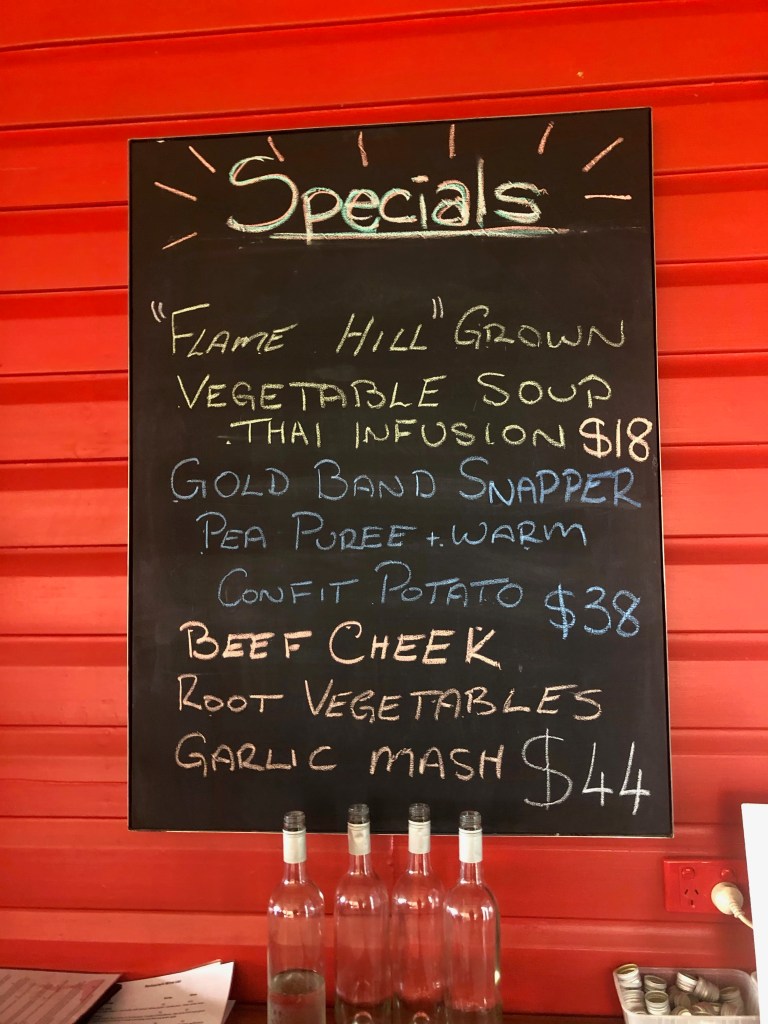 Specials
"FLAME HILL" GROWN
VEGETABLE SOUP
THAI INFUSION $18
GOLD BAND SNAPPER
PEA PUREE + WARM
CONFIT POTATO $38
BEEF CHEEK
ROOT VEGETABLES
GARLIC MASH $44